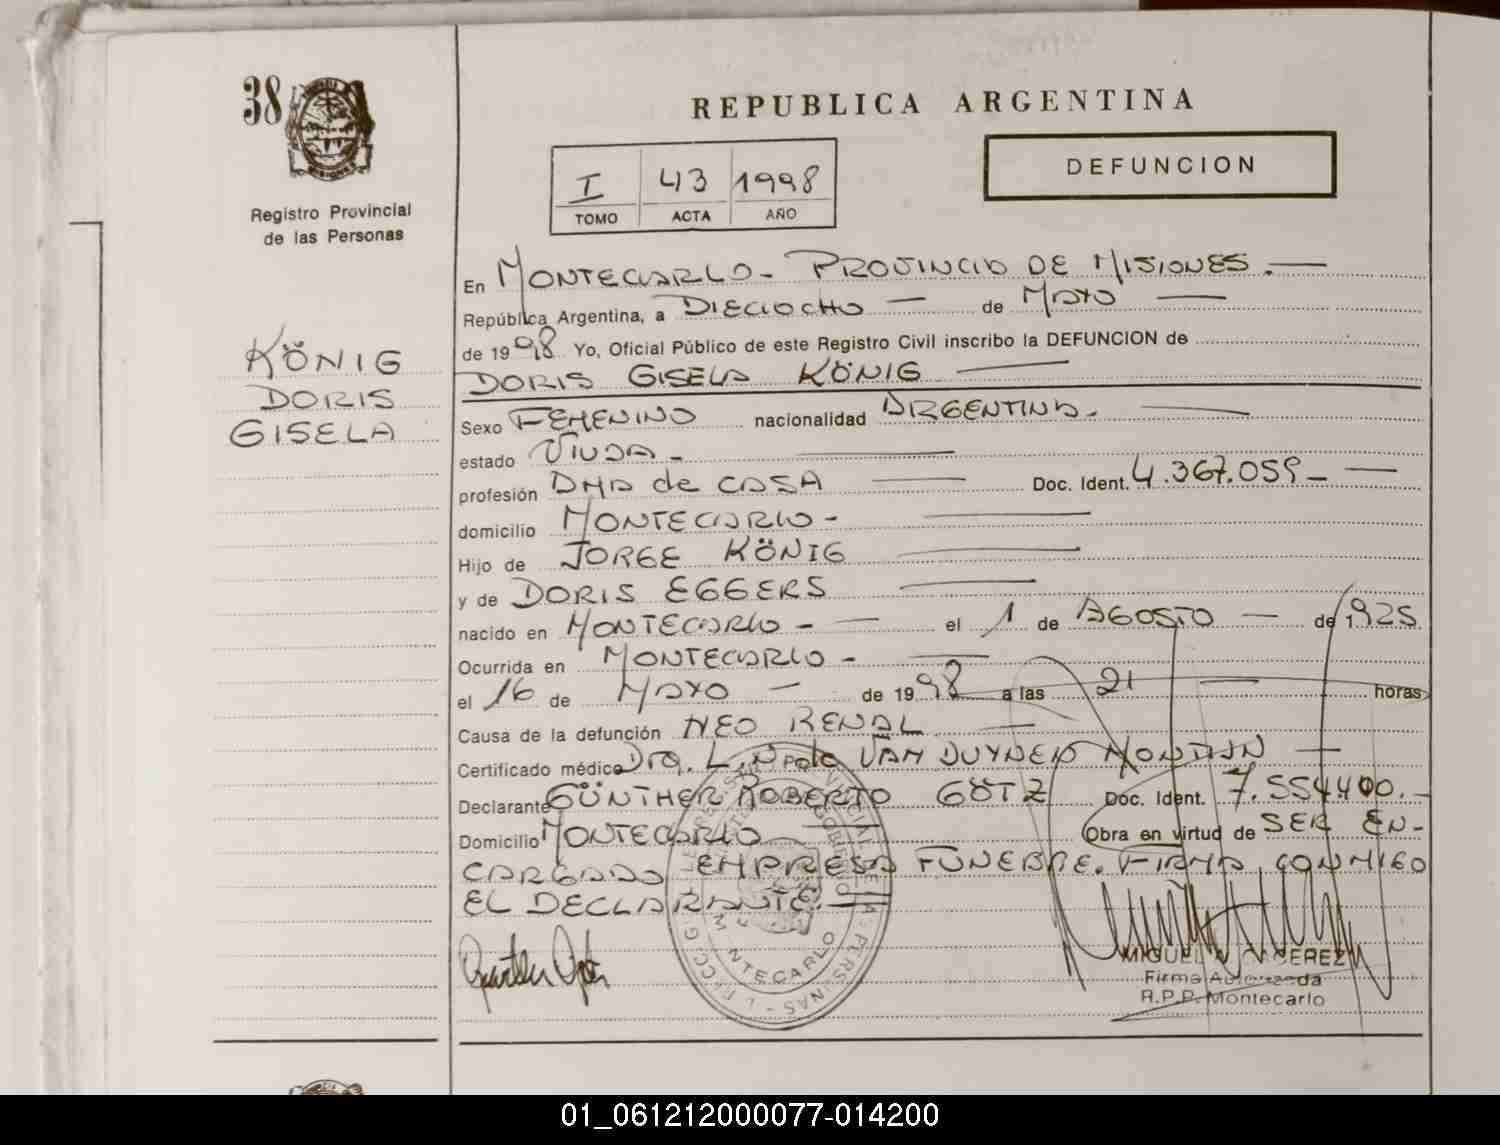 38
Registro Provincial
de las Personas
KÖNIG
DORIS
GISELA
REPUBLICA ARGENTINA
I 43 1998
TOMO ACTA AÑO
DEFUNCION
En MONTECARLO - PROVINCIA DE MISIONES.
República Argentina, a DIECIOCHO de MAYO
de 1998 Yo, Oficial Público de este Registro Civil inscribo la DEFUNCION de
DORIS GISELA KÖNIG
Sexo FEMENINO nacionalidad ARGENTINA.
estado VIUDA -
profesión AMA de CASA Doc. Ident. 4.367.059 -
domicilio MONTECARLO -
Hijo de JORGE KÖNIG
y de DORIS EGGERS
nacido en MONTECARLO - el 1 de AGOSTO de 1925
Ocurrida en MONTECARLO -
el 16 de MAYO - de 1998 a las 21 horas
Causa de la defunción NEO RENAL
Certificado médico Dra. L. VAN
Declarante GÜNTHER ROBERTO GÖTZ Doc. Ident. 7.554400. -
Domicilio MONTECARLO Obra en virtud de SER EN-
CARGADO EMPRESA FÚNEBRE. FIRMA CONMIGO
EL DECLARANTE. -
MONTECARLO
MIGUEL
Firma Autorizada
R.P.P. Montecarlo
01_061212000077-014200